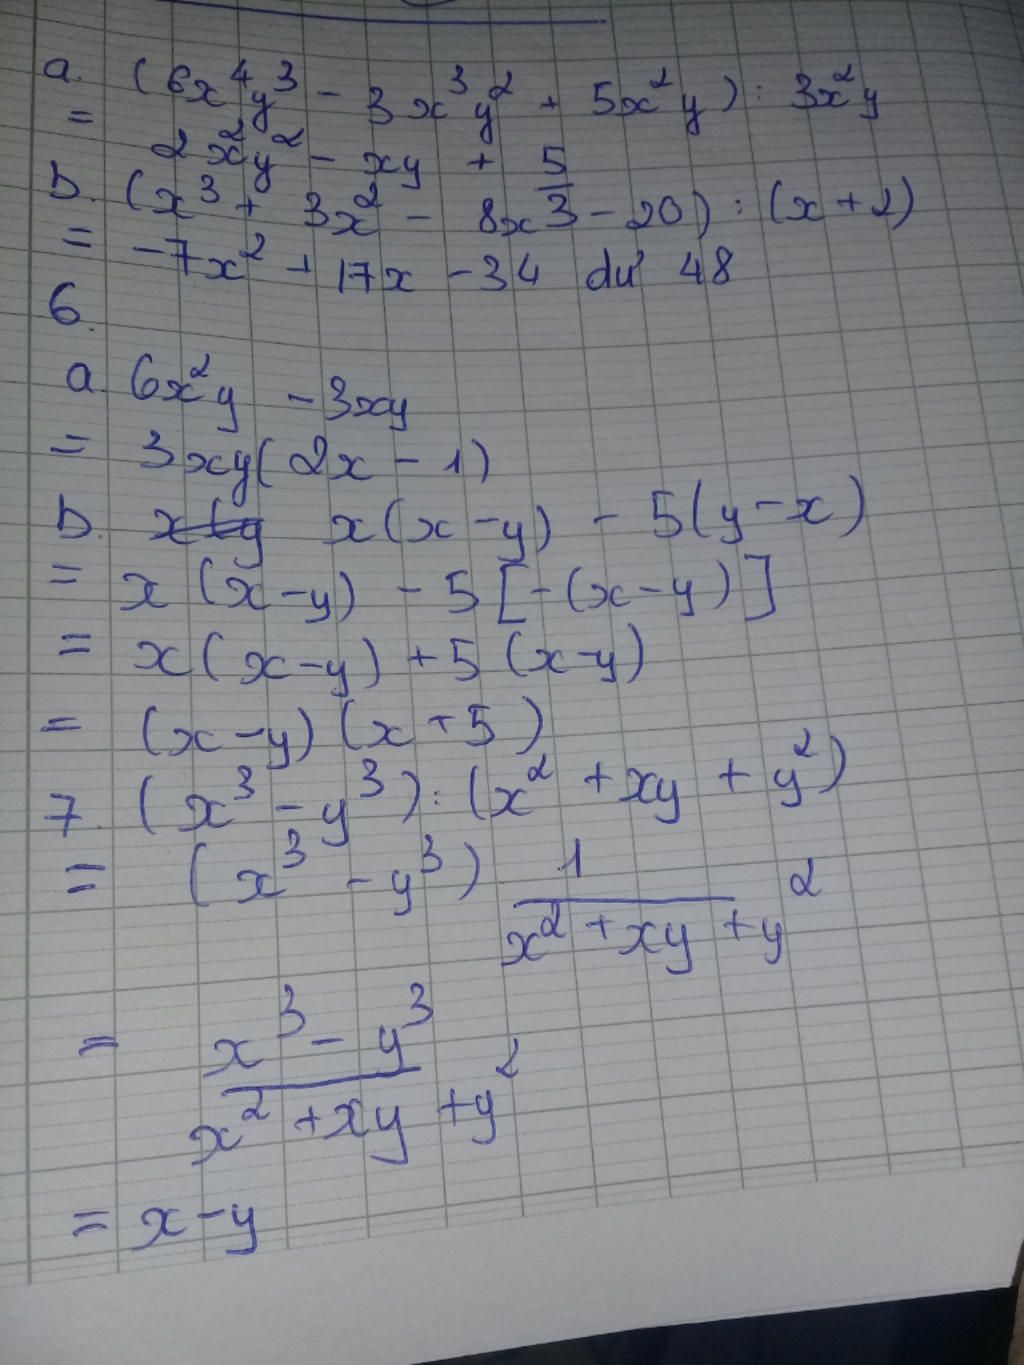 a. (6x⁴y³ - 3x³y² + 5x²y) : 3x²y
= 2x²y² - xy + 5/3
b. (x³ + 3x² - 8x³ - 20) : (x + 2)
= -7x² + 17x - 34 dư 48
6.
a. 6x²y - 3xy
= 3xy(2x - 1)
b. x(x - y) - 5(y - x)
= x(x - y) - 5[-(x - y)]
= x(x - y) + 5(x - y)
= (x - y)(x + 5)
7. (x³ - y³) : (x² + xy + y²)
= (x³ - y³) 1/(x² + xy + y²)
= (x³ - y³)/(x² + xy + y²)
= x - y